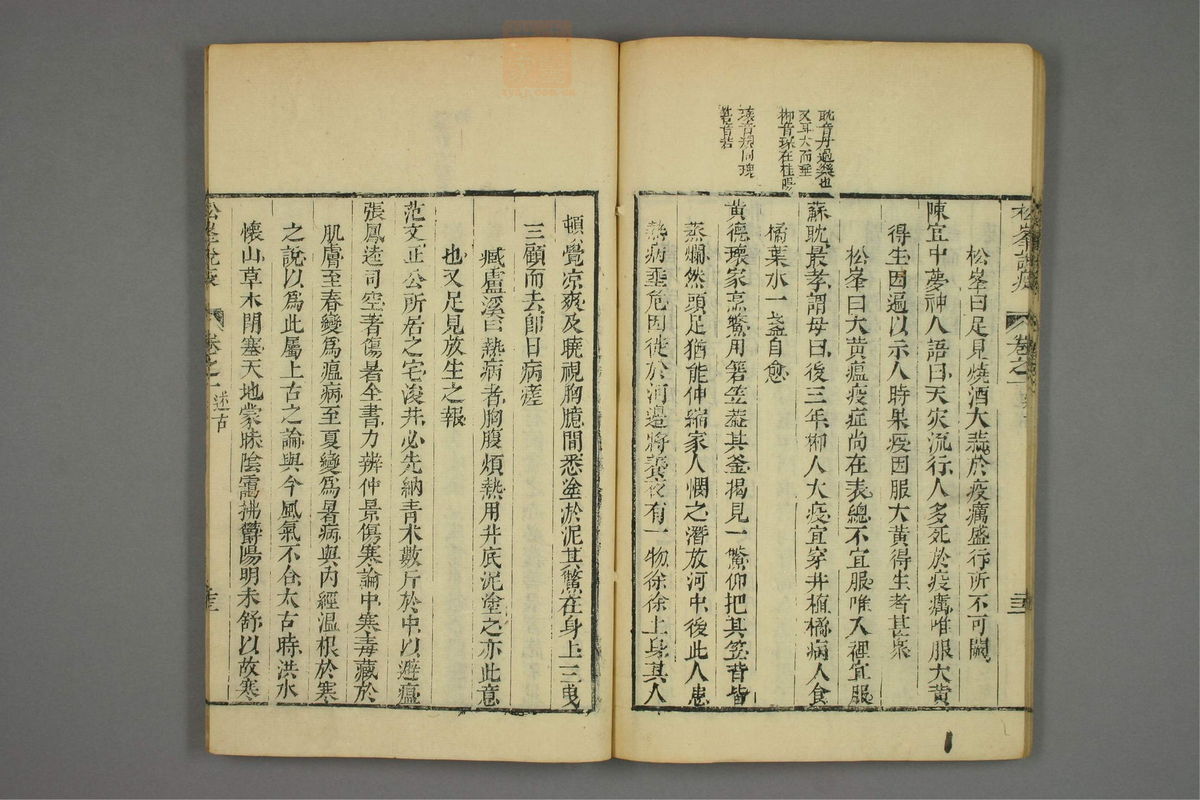 耽音丹過樂也
又耳大而垂
郴音琛在桂陽
瓌音規同瑰
篛音若
松峯說疫
卷之一
松峯曰足見燒酒大蒜於疫癘盛行所不可闕
陳宜中夢神人語曰天灾流行人多死於疫癘唯服大黃
得生因遍以示人時果疫因服大黃得生者甚衆
松峯曰大黃瘟疫症尚在表總不宜服唯入裡宜服
蘇耽最孝謂母曰後三年郴人大疫宜穿井植橘病人食
橘葉水一盞自愈
黃德瓌家烹鱉用篛笠蓋其釜揭見一鱉仰把其笠背皆
蒸爛然頭足猶能伸縮家人憫之潛放河中後此人患
熱病垂危因徙於河邊將養夜有一物徐徐上身其人
頓覺凉爽及曉視胸臆間悉塗於泥其鱉在身上三曳
三顧而去卽日病瘥
臧盧溪曰熱病者胸腹煩熱用井底泥塗之亦此意
也又足見放生之報
范文正公所居之宅浚井必先納青朮數斤於中以避瘟
張鳳逵司空著傷暑全書力辨仲景傷寒論中寒毒藏於
肌膚至春變爲瘟病至夏變爲暑病與內經溫根於寒
之說以爲此屬上古之論與今風氣不合太古時洪水
懷山草木閉塞天地蒙昧陰霾拂鬱陽明未舒以故寒
松峯說疫
卷之一
述古